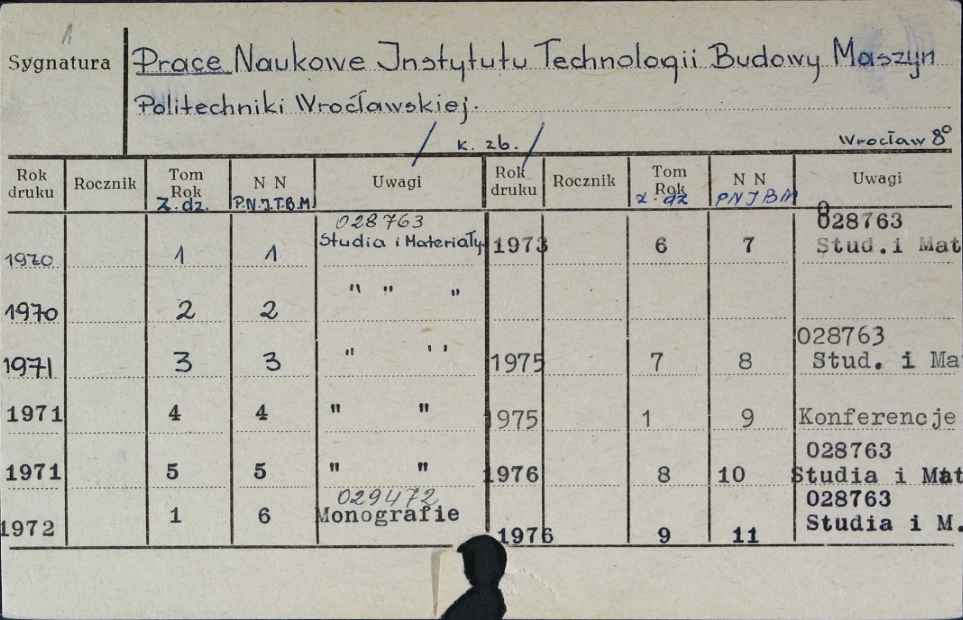 1
Sygnatura
Prace Naukowe Instytutu Technologii Budowy Maszyn
Politechniki Wrocławskiej.
/ k. zb. /
Wrocław 8°
Rok druku Rocznik Tom Rok N N Uwagi Rok druku Rocznik Tom Rok N N Uwagi
z. dz. P.N.I.T.B.M z. dz PNIBM
028763 028763
1970 1 1 Studia i Materiały 1973 6 7 Stud.i Mat
1970 2 2 " " "
028763
1971 3 3 " " 1975 7 8 Stud. i Ma
1971 4 4 " " 1975 1 9 Konferencje
028763
1971 5 5 " " 1976 8 10 Studia i Mat
029472 028763
1972 1 6 Monografie 1976 9 11 Studia i M.